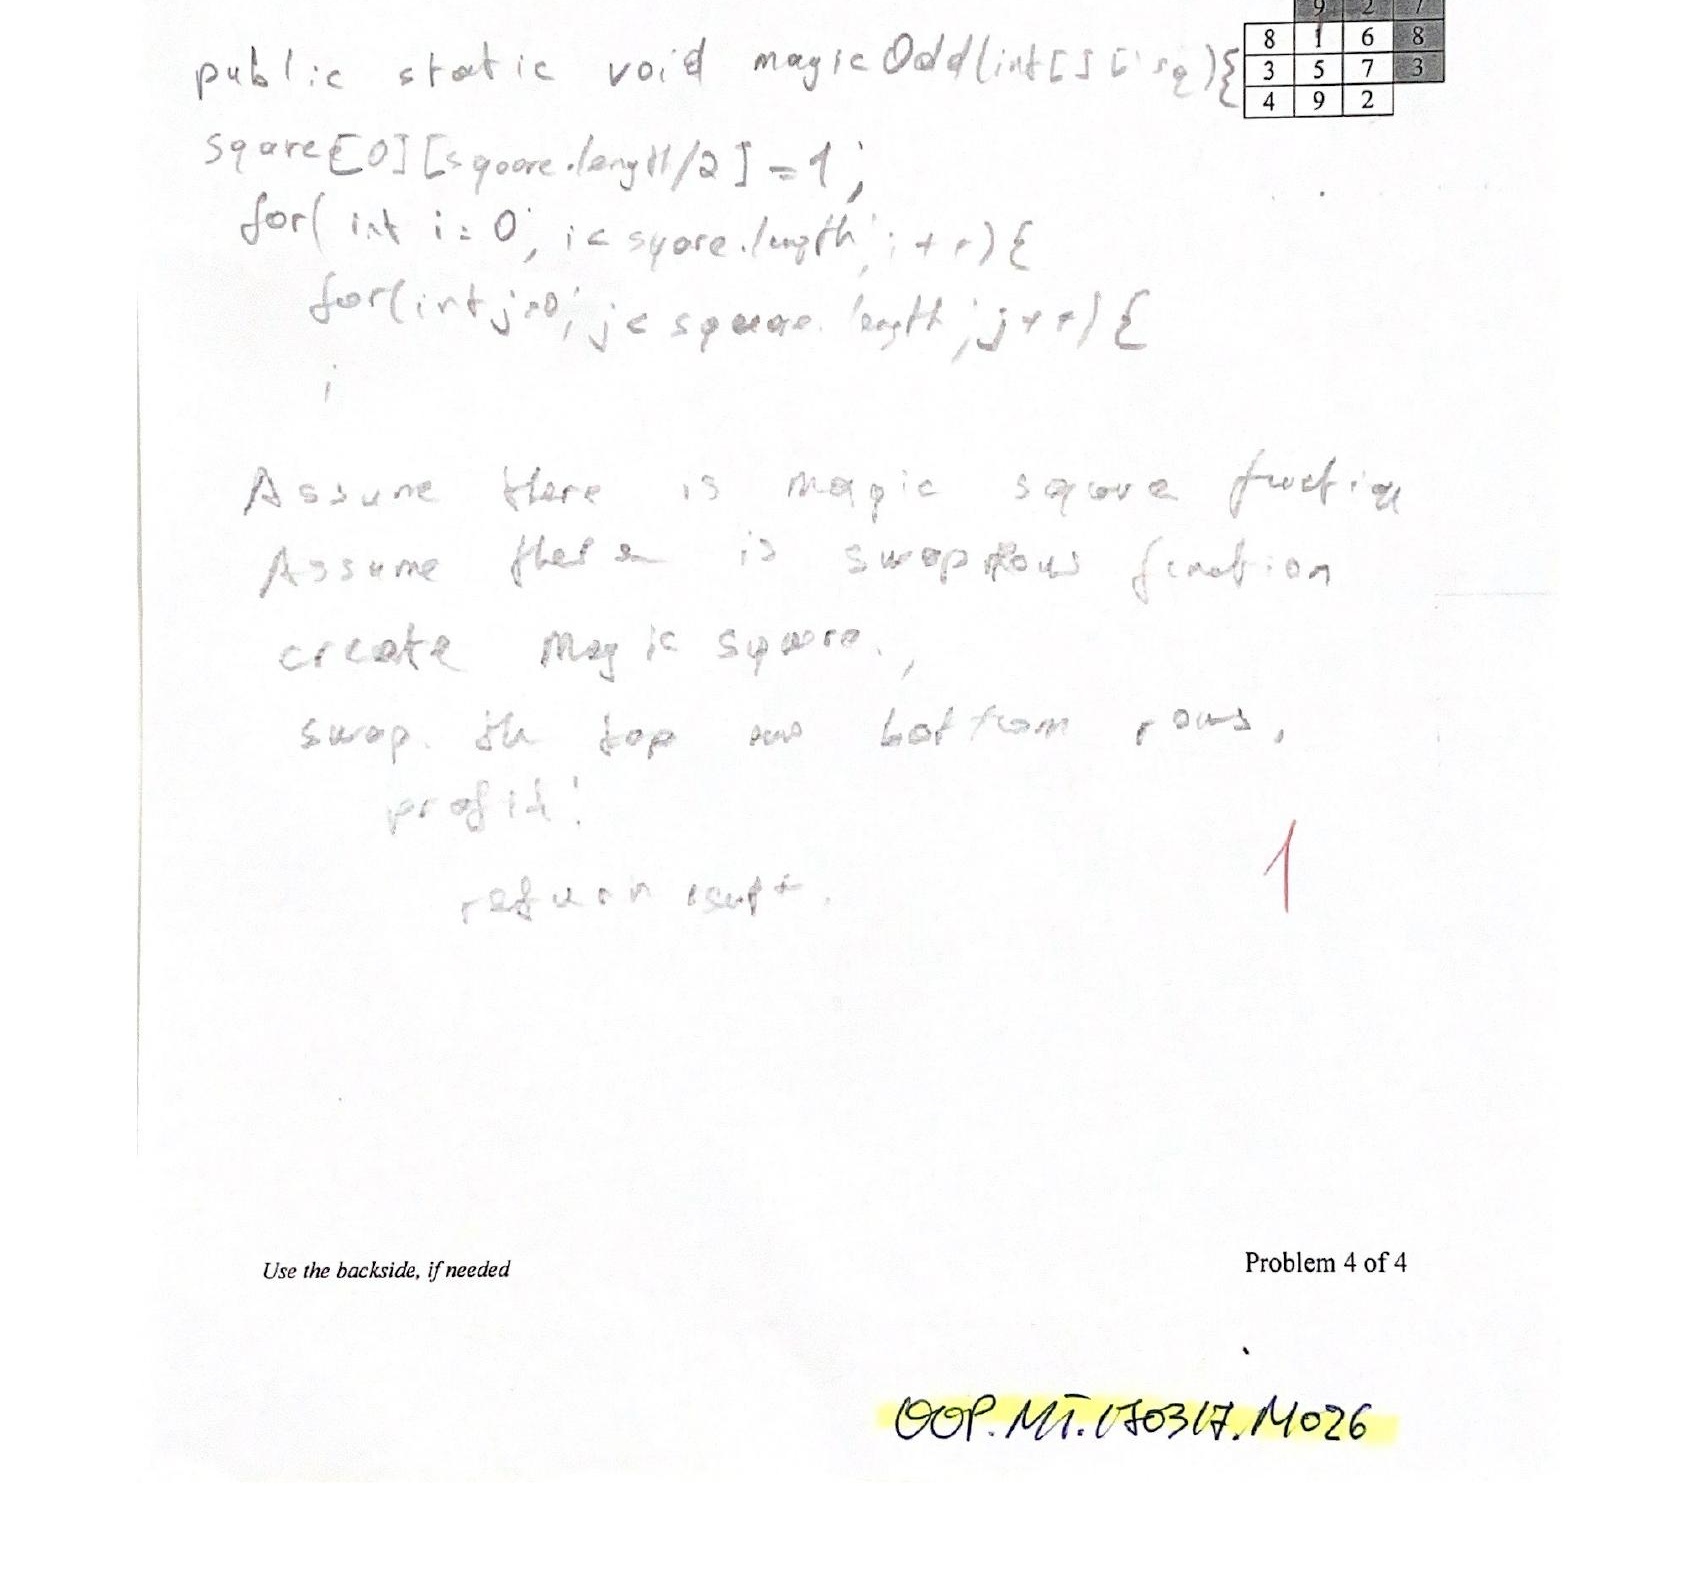 9 2 7
8 1 6 8
3 5 7 3
4 9 2
public static void magicOdd(int[][] sq){
sqare[0][sqoore.length/2]=1;
for(int i=0; i<sqore.length; i++){
for(int j=0; j<square.length; j++){
i
Assume there is magic square
Assume there is swap rows function
create Magic sqoore.
swap the top bottom rows.
profit!
return
1
Use the backside, if needed
Problem 4 of 4
OOP.MT.170317.M026